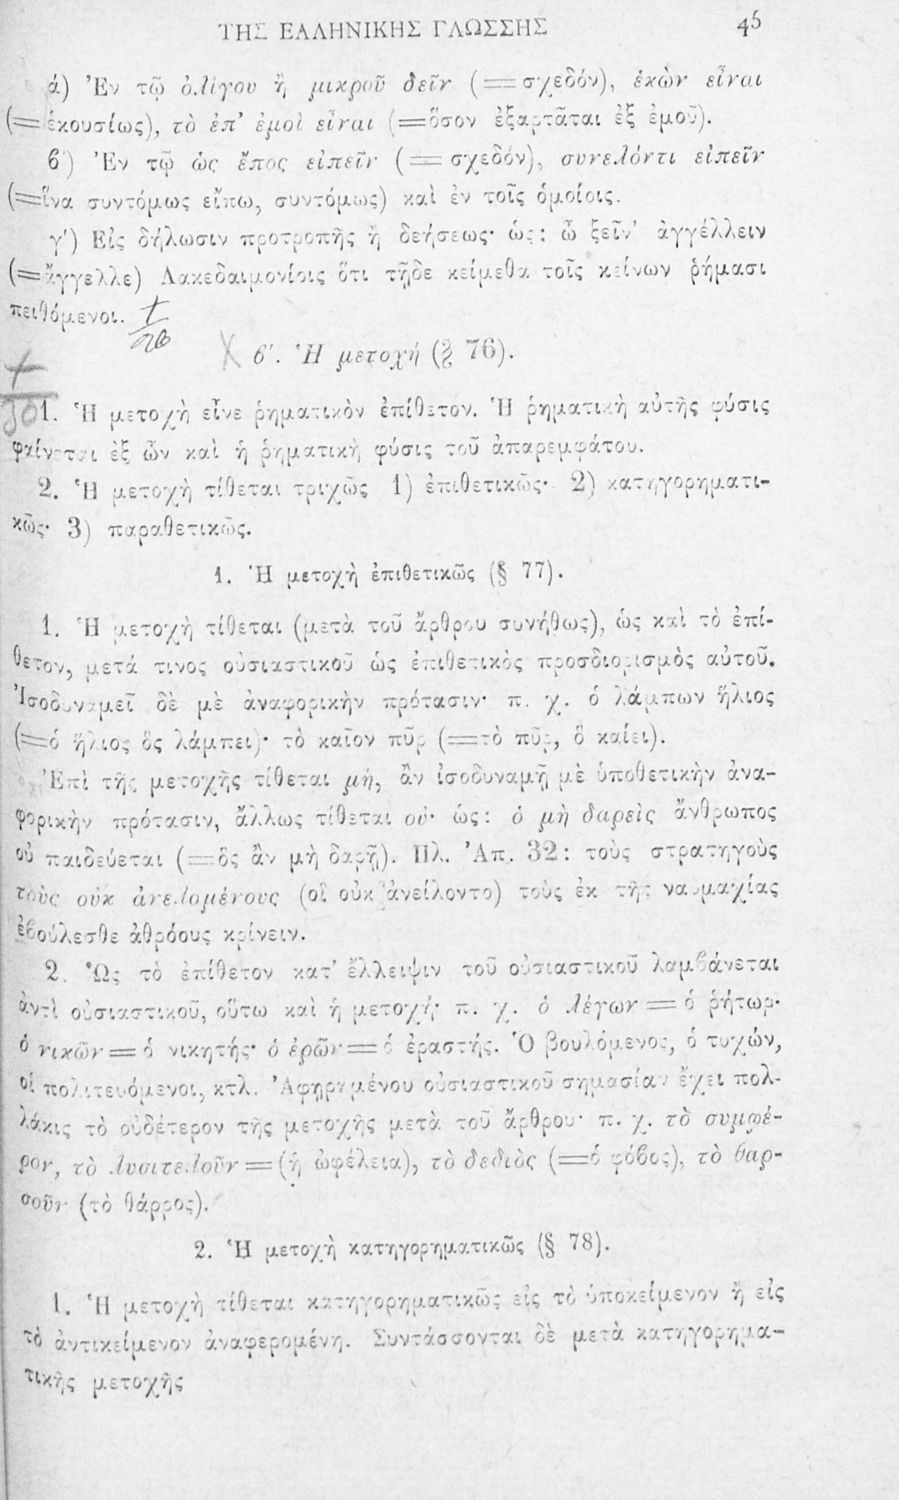 ΤΗΣ ΕΛΛΗΝΙΚΗΣ ΓΛΩΣΣΗΣ 45
ά) Ἐν τῷ ὀλίγου ἢ μικροῦ δεῖν (= σχεδόν), ἑκὼν εἶναι
(=ἑκουσίως), τὸ ἐπ' ἐμοὶ εἶναι (=ὅσον ἐξαρτᾶται ἐξ ἐμοῦ).
6΄) Ἐν τῷ ὡς ἔπος εἰπεῖν (= σχεδόν), συνελόντι εἰπεῖν
(=ἵνα συντόμως εἴπω, συντόμως) καὶ ἐν τοῖς ὁμοίοις.
γ΄) Εἰς δήλωσιν προτροπῆς ἢ δεήσεως· ὡς: ὦ ξεῖν' ἀγγέλλειν
(=ἄγγελλε) Λακεδαιμονίοις ὅτι τῇδε κείμεθα τοῖς κείνων ῥήμασι
πειθόμενοι.
6΄. Ἡ μετοχή (§ 76).
1. Ἡ μετοχὴ εἶνε ῥηματικὸν ἐπίθετον. Ἡ ῥηματικὴ αὐτῆς φύσις
φαίνεται ἐξ ὧν καὶ ἡ ῥηματικὴ φύσις τοῦ ἀπαρεμφάτου.
2. Ἡ μετοχὴ τίθεται τριχῶς 1) ἐπιθετικῶς· 2) κατηγορηματι-
κῶς· 3) παραθετικῶς.
1. Ἡ μετοχὴ ἐπιθετικῶς (§ 77).
1. Ἡ μετοχὴ τίθεται (μετὰ τοῦ ἄρθρου συνήθως), ὡς καὶ τὸ ἐπί-
θετον, μετά τινος οὐσιαστικοῦ ὡς ἐπιθετικὸς προσδιορισμὸς αὐτοῦ.
Ἰσοδυναμεῖ δὲ μὲ ἀναφορικὴν πρότασιν· π. χ. ὁ λάμπων ἥλιος
(=ὁ ἥλιος ὃς λάμπει)· τὸ καῖον πῦρ (=τὸ πῦρ, ὃ καίει).
Ἐπὶ τῆς μετοχῆς τίθεται μή, ἂν ἰσοδυναμῇ μὲ ὑποθετικὴν ἀνα-
φορικὴν πρότασιν, ἄλλως τίθεται οὐ· ὡς: ὁ μὴ δαρεὶς ἄνθρωπος
οὐ παιδεύεται (=ὃς ἂν μὴ δαρῇ). Πλ. Ἀπ. 32: τοὺς στρατηγοὺς
τοὺς οὐκ ἀνελομένους (οἳ οὐκ ἀνείλοντο) τοὺς ἐκ τῆς ναυμαχίας
ἐβούλεσθε ἀθρόους κρίνειν.
2. Ὡς τὸ ἐπίθετον κατ' ἔλλειψιν τοῦ οὐσιαστικοῦ λαμβάνεται
ἀντὶ οὐσιαστικοῦ, οὕτω καὶ ἡ μετοχή· π. χ. ὁ λέγων = ὁ ῥήτωρ·
ὁ νικῶν = ὁ νικητής· ὁ ἐρῶν = ὁ ἐραστής. Ὁ βουλόμενος, ὁ τυχών,
οἱ πολιτευόμενοι, κτλ. Ἀφῃρημένου οὐσιαστικοῦ σημασίαν ἔχει πολ-
λάκις τὸ οὐδέτερον τῆς μετοχῆς μετὰ τοῦ ἄρθρου· π. χ. τὸ συμφέ-
ρον, τὸ λυσιτελοῦν = (ἡ ὠφέλεια), τὸ δεδιὸς (=ὁ φόβος), τὸ θαρ-
σοῦν (τὸ θάρρος).
2. Ἡ μετοχὴ κατηγορηματικῶς (§ 78).
1. Ἡ μετοχὴ τίθεται κατηγορηματικῶς εἰς τὸ ὑποκείμενον ἢ εἰς
τὸ ἀντικείμενον ἀναφερομένη. Συντάσσονται δὲ μετὰ κατηγορημα-
τικῆς μετοχῆς